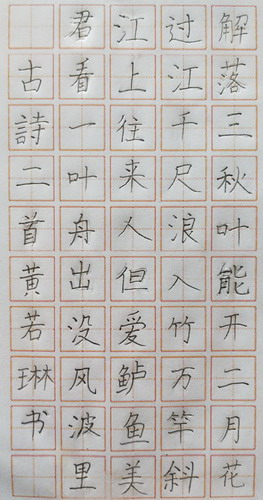 解落三秋叶能开二月花
过江千尺浪入竹万竿斜
江上往来人但爱鲈鱼美
君看一叶舟出没风波里
古詩二首黄若琳书